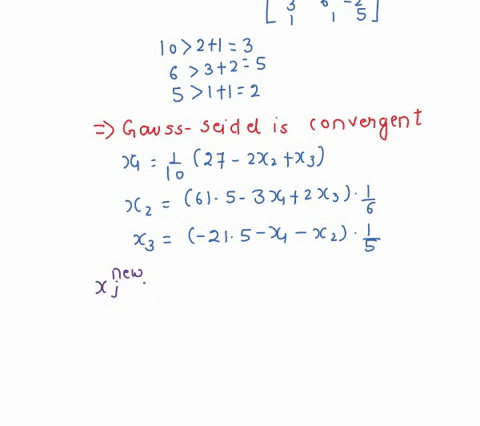 3 6 -2
1 1 5
10 > 2+1 = 3
6 > 3+2 = 5
5 > 1+1 = 2
⇒ Gauss-seidel is convergent
x₁ = 1/10 (27 - 2x₂ + x₃)
x₂ = (61.5 - 3x₁ + 2x₃) · 1/6
x₃ = (-21.5 - x₁ - x₂) · 1/5
xⱼ^new.